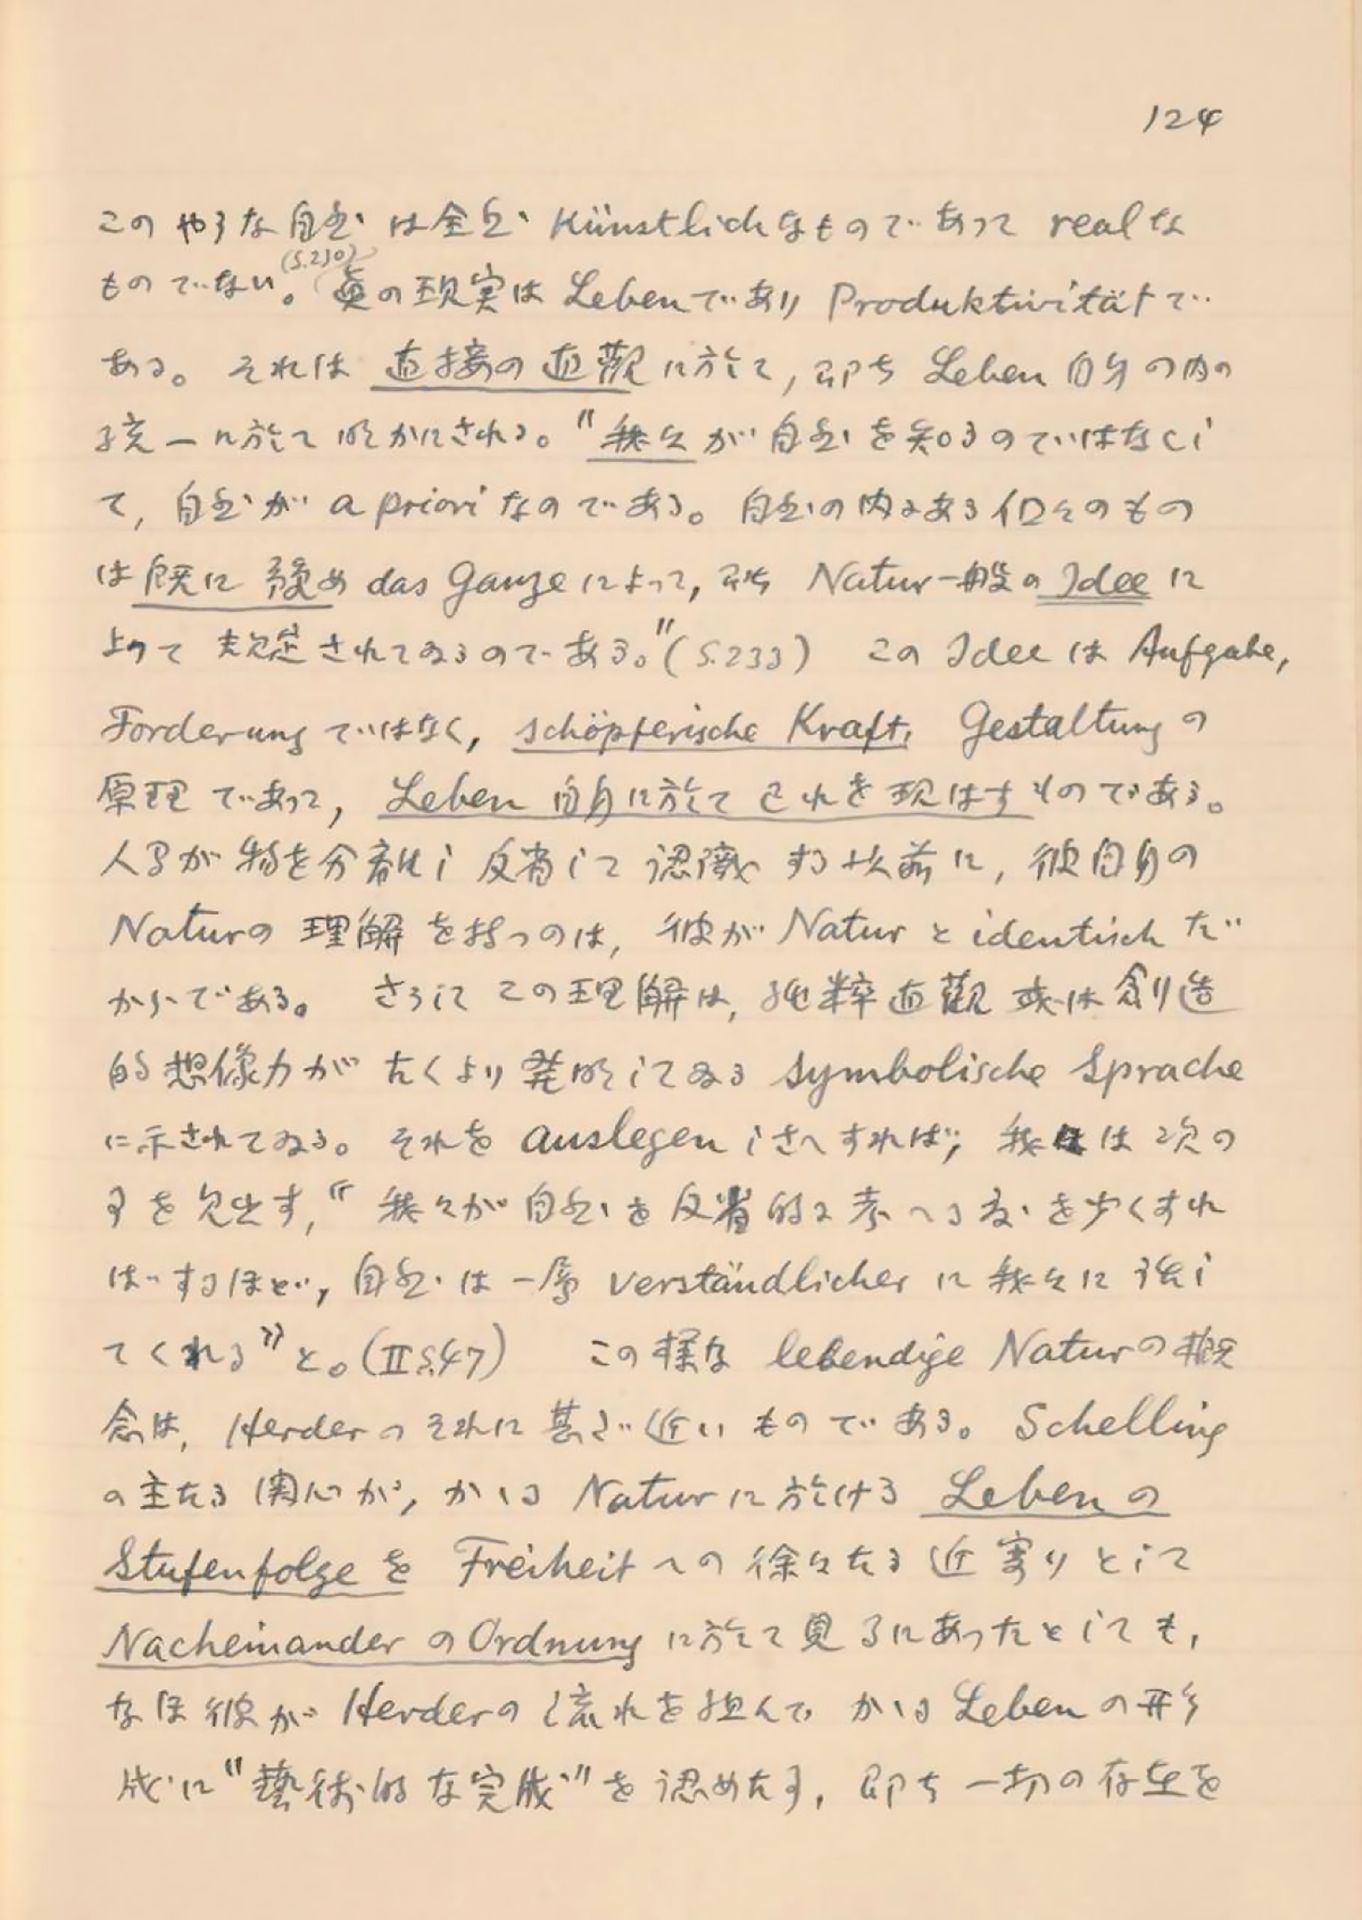 124
このやうな自然は全然künstlichなものであつてrealな
ものでない。(S.230) 眞の現実はLebenでありProduktivitätで
ある。それは直接の直觀に於て, 即ちLeben自身の内の
統一に於て明かにされる。"我々が自然を知るのではなくし
て, 自然がa prioriなのである。自然の内にある個々のもの
は既に予めdas Ganzeによつて, 即ちNatur一般のIdeeに
よつて規定されてゐるのである。"(S.233) このIdeeはAufgabe,
Forderungではなく, schöpferische Kraft, Gestaltungの
原理であつて, Leben自身に於てこれを現はすものである。
人間が物を分離し反省して認識する以前に, 彼自身の
Naturの理解を持つのは, 彼がNaturとidentischだ
からである。さうしてこの理解は, 純粋直觀或は創造
的想像力がたくより発明してゐるsymbolische Sprache
に示されてゐる。それをauslegenしさへすれば, 我々は次の
事を見出す, "我々が自然を反省的に考へる事を少くすれ
ばするほど, 自然は一層verständlicherに我々に話し
てくれる"と。(II S.47) この様なlebendige Naturの概
念は, Herderのそれに甚だ近いものである。Schelling
の主たる関心が, かゝるNaturに於けるLebenの
StufenfolgeをFreiheitへの徐々たる近寄りとして
Nacheinanderの Ordnungに於て見るにあつたとしても,
なほ彼がHerderの流れを組んでかゝるLebenの形
成に"藝術的な完成"を認めた事, 即ち一切の存在を